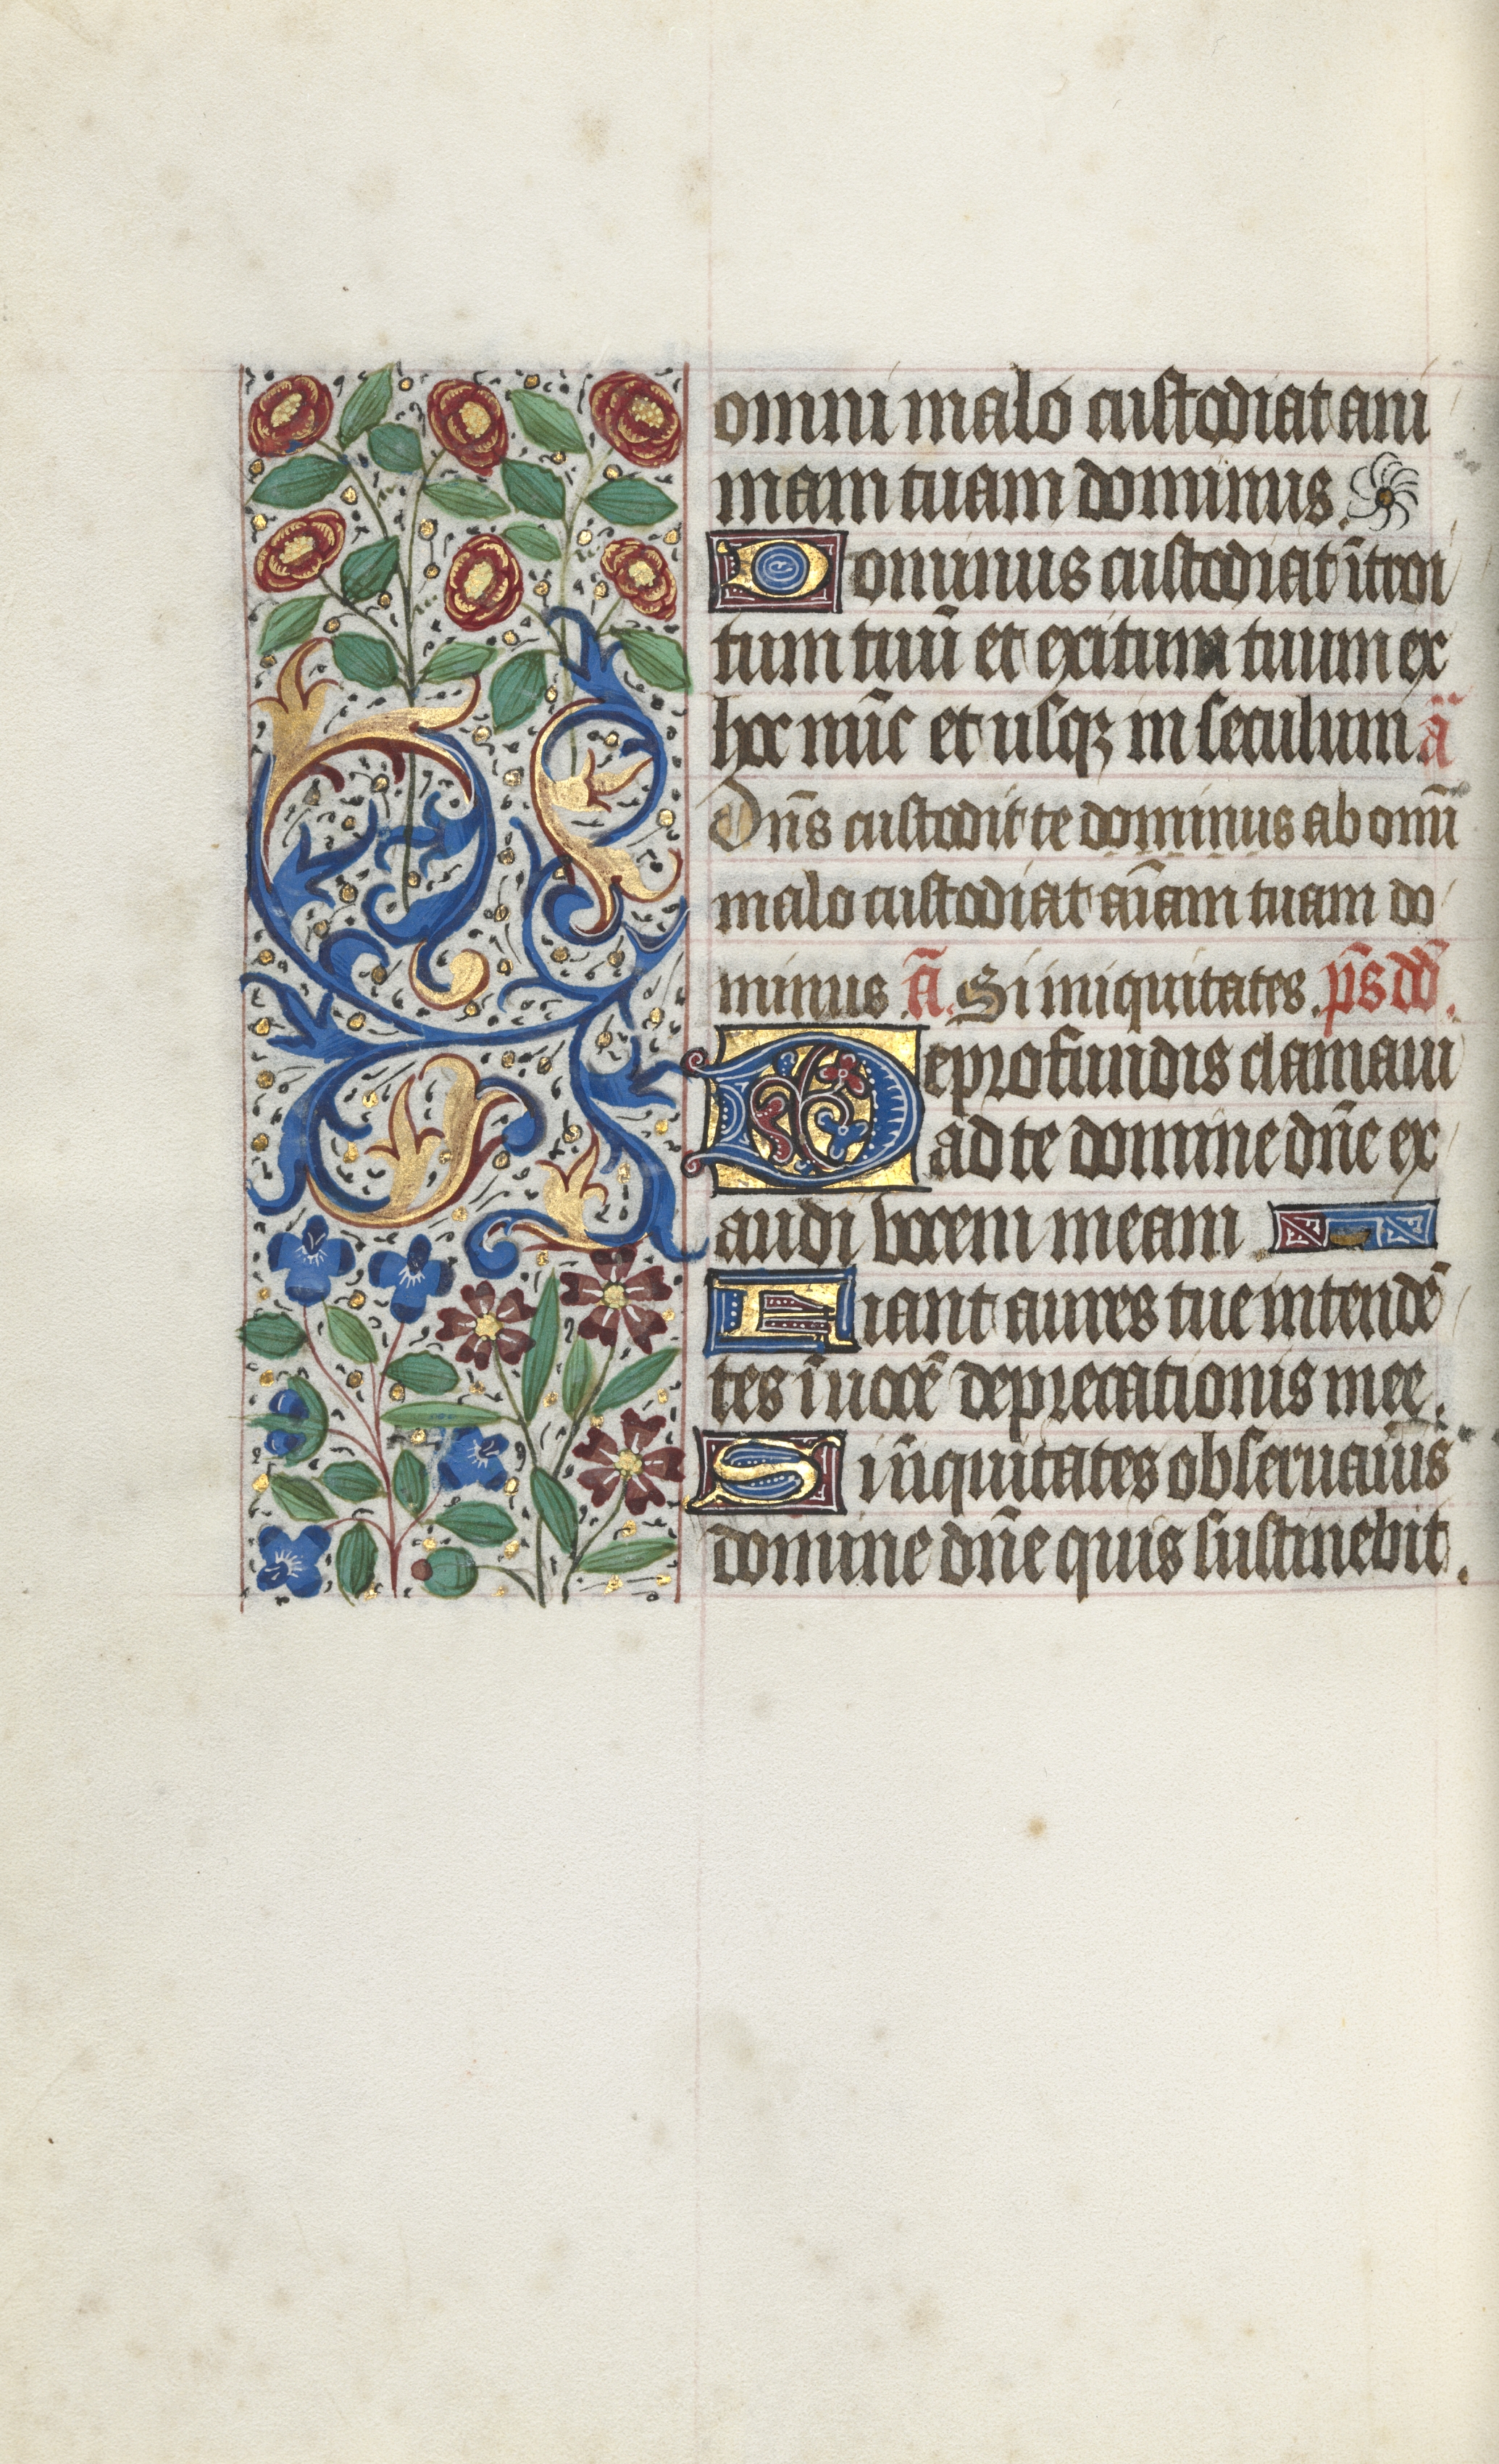 omni malo custodiat ani
mam tuam dominus.
Dominus custodiat ītroi
tum tuū et exitum tuum ex
hoc nūc et usqꝫ in seculum ā
Dn̄s custodit te dominus ab omī
malo custodiat aīam tuam do
minus ā. Si iniquitates. ps̄ dd̄.
De profundis clamaui
ad te domine dn̄e ex
audi vocem meam
Fiant aures tue intendē
tes ī uocē deprecationis mee.
Si iīiquitates obseruau̅is
domine dn̄e quis sustinebit.